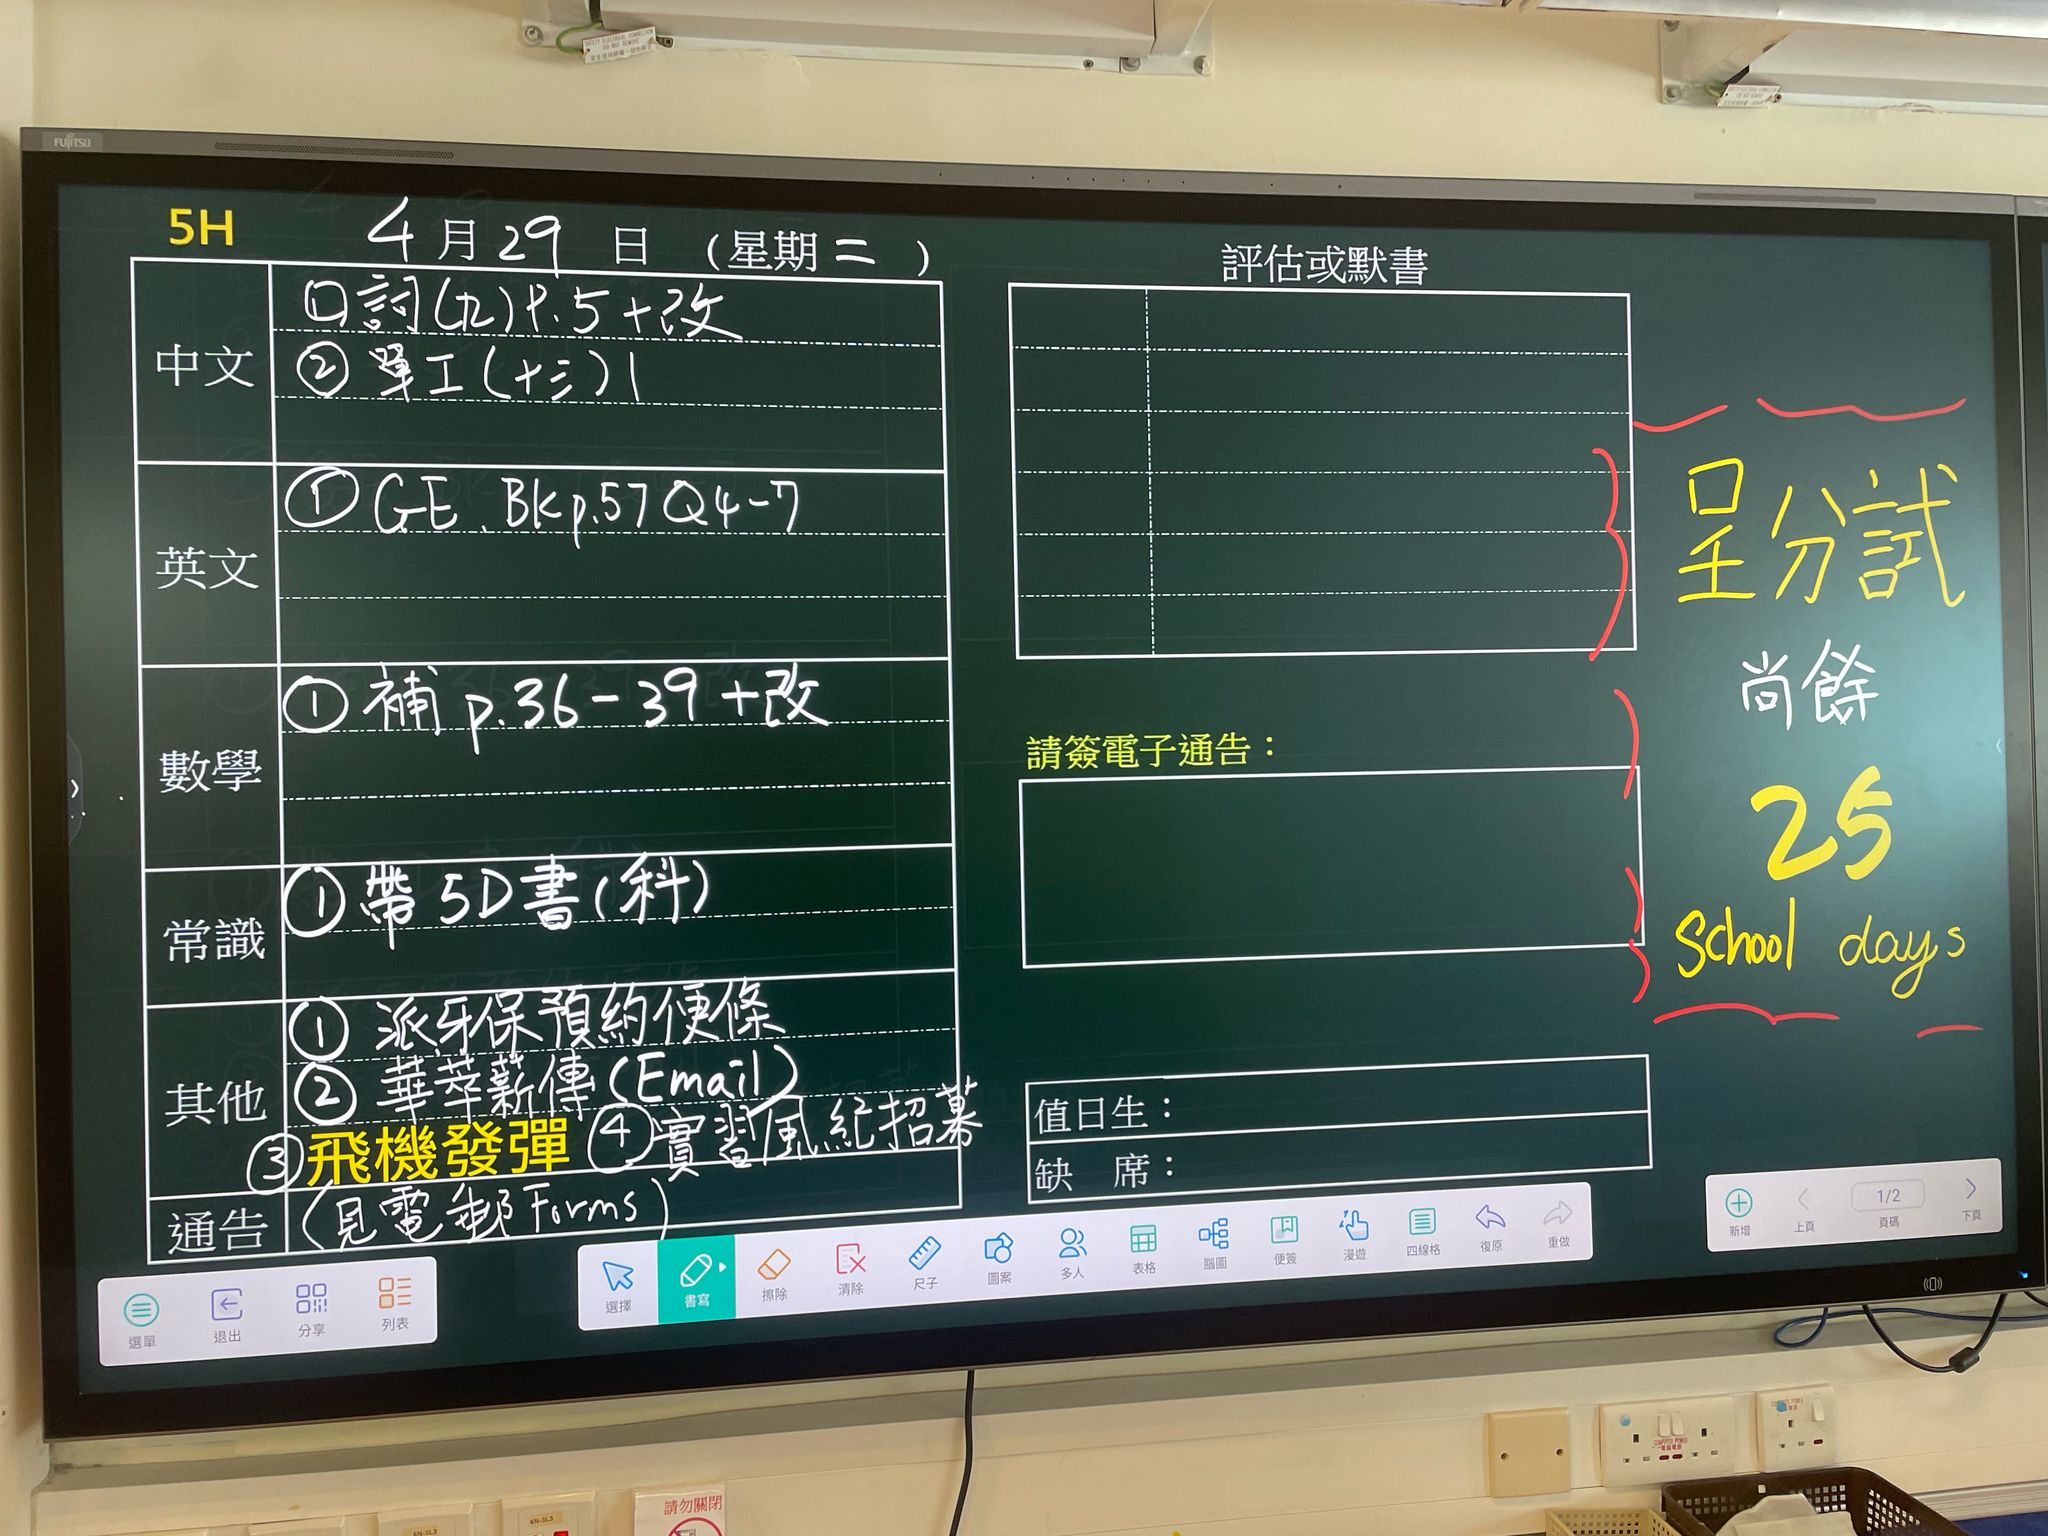 SAFETY ELECTRICAL CONNECTION
DO NOT REMOVE
FUJITSU
5H
4月29日 (星期二)
中文
① 詞(九)P.5+改
② 單工(十三)1
英文
① GE. BK p.57 Q4-7
數學
① 補 p.36-39+改
常識
① 帶5D書(科)
其他
① 派牙保預約便條
② 華萃薪傳(Email)
③飛機發彈 ④實習風紀招募
通告
(見電郵Forms)
評估或默書
請簽電子通告：
值日生：
缺 席：
呈分試
尚餘
25
school days
選單 退出 分享 列表
選擇 書寫 擦除 清除 尺子 圖案 多人 表格 腦圖 便簽 漫遊 四線格 復原 重做
新增 上頁 1/2 頁碼 下頁
請勿關閉
6N-3L3
6N-3L3